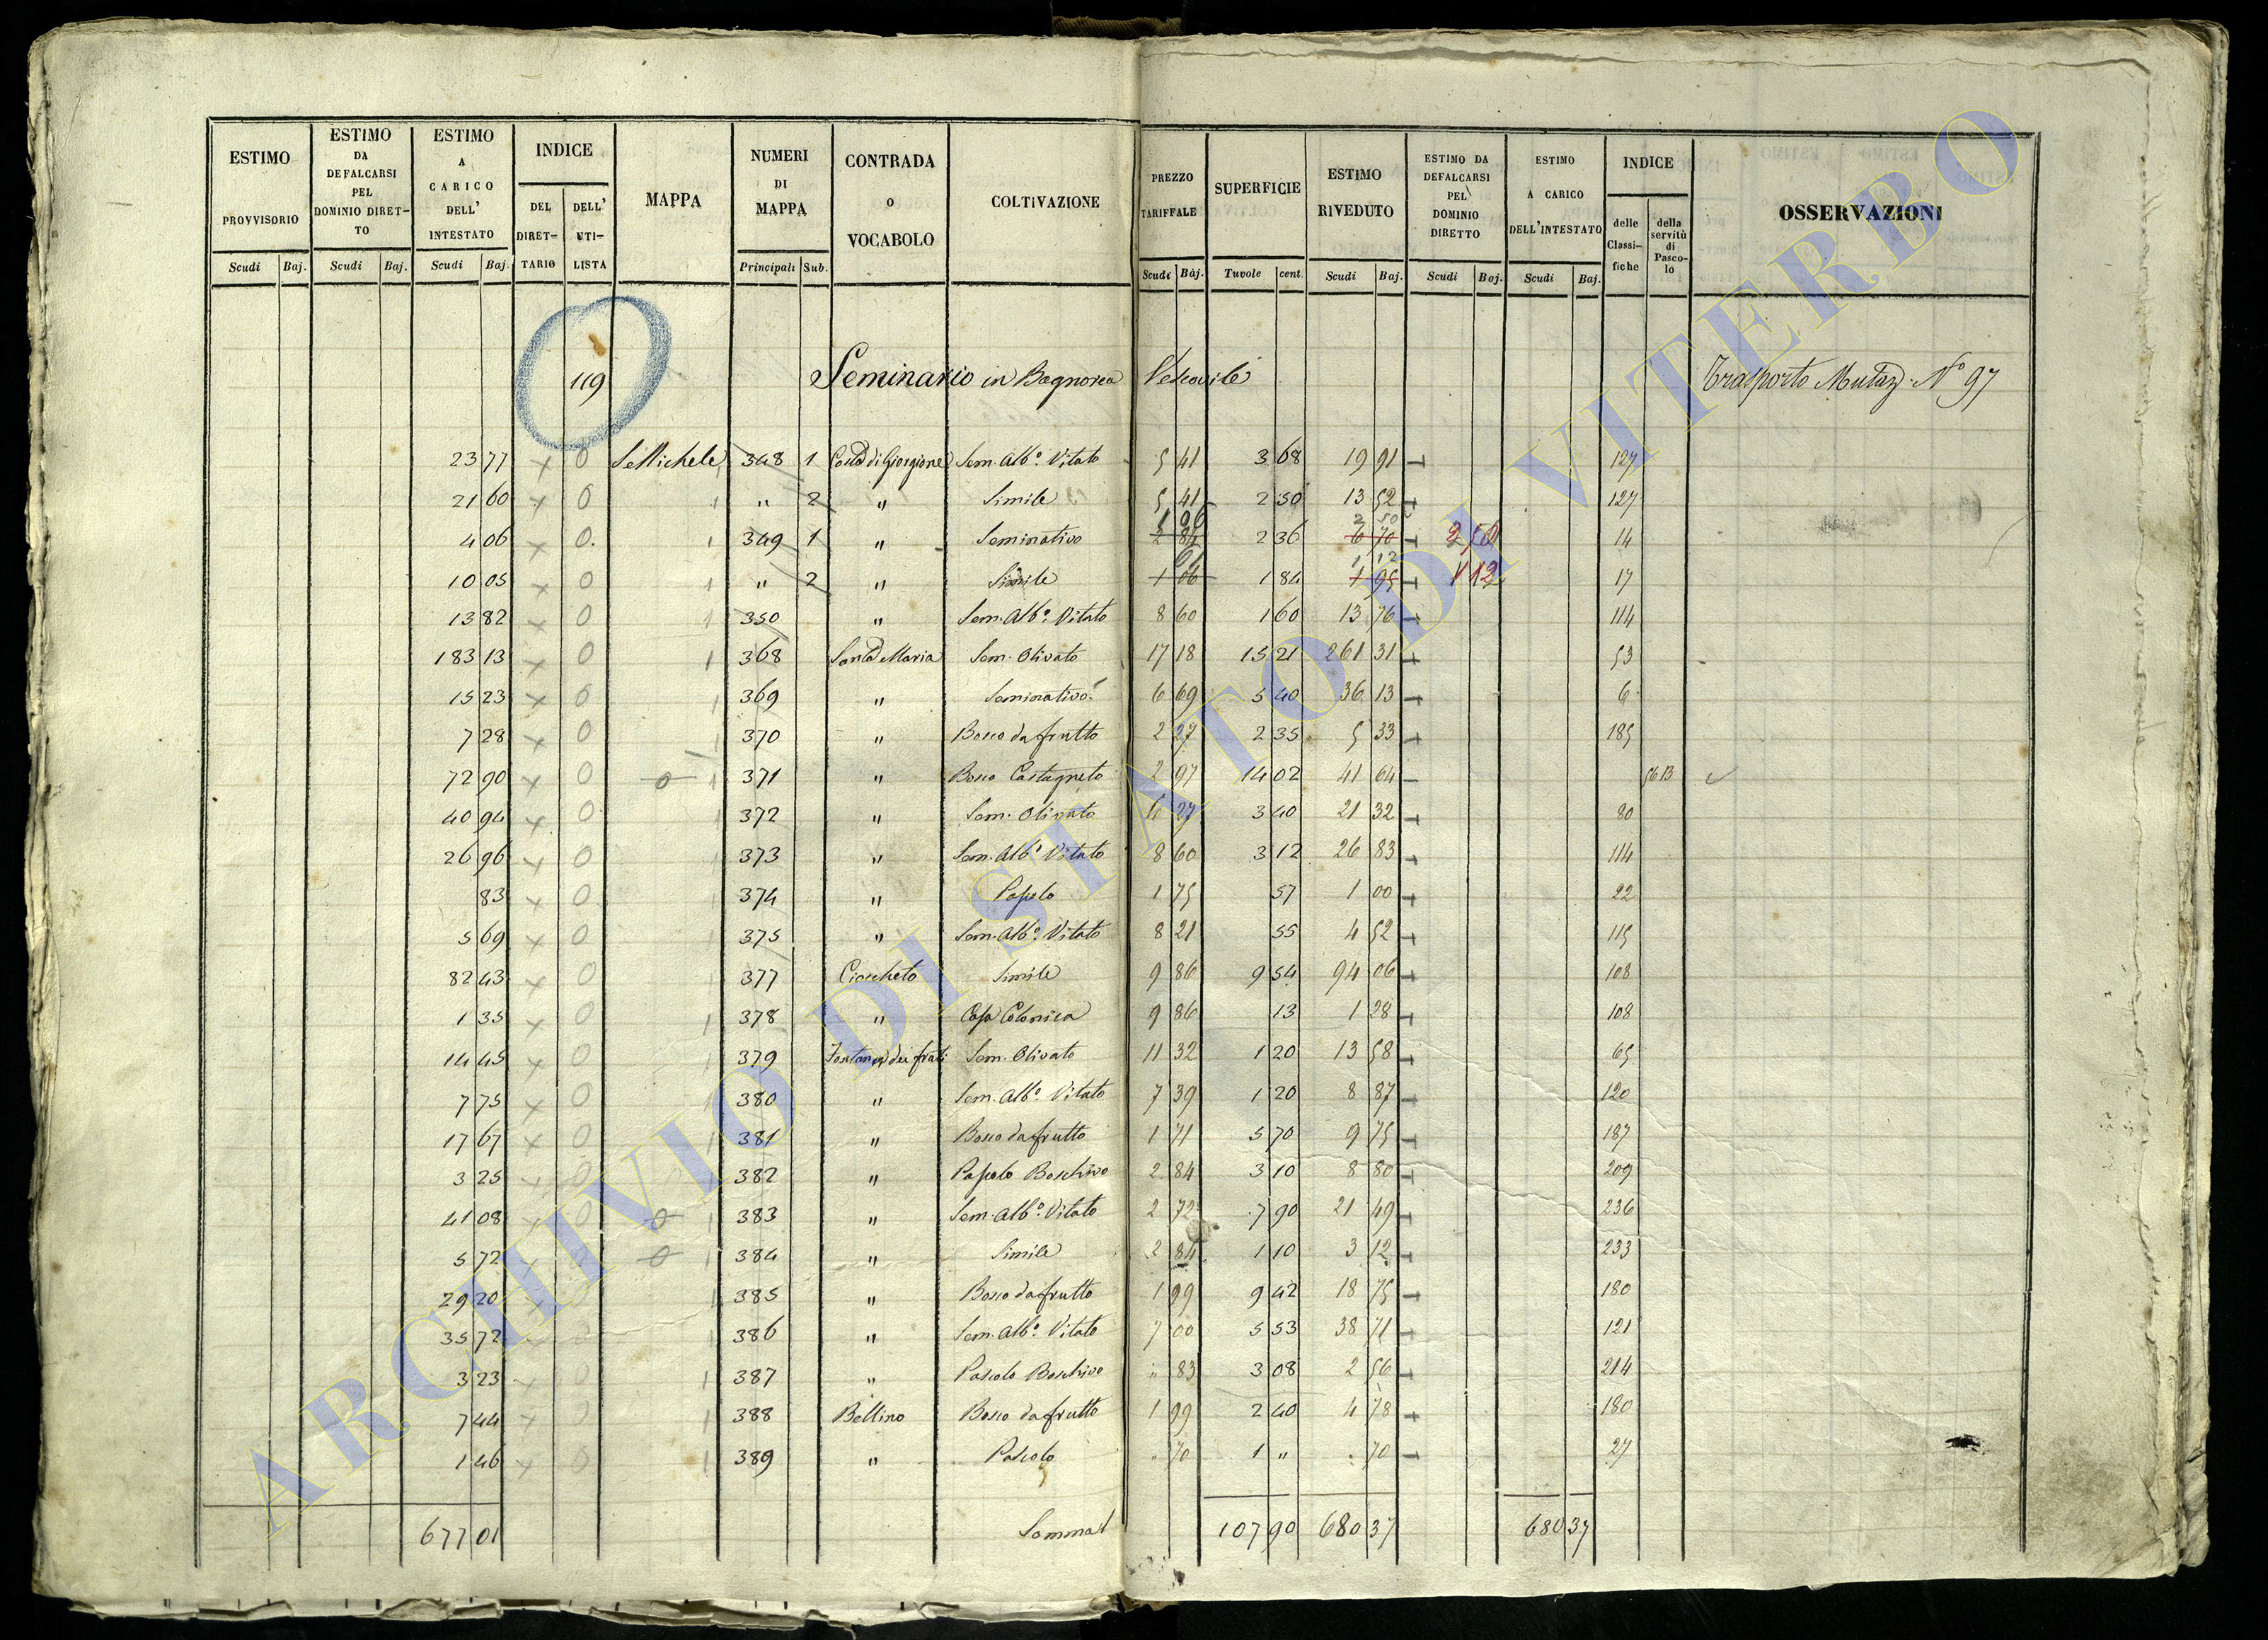 ESTIMO PROVVISORIO | ESTIMO DA DEFALCARSI PEL DOMINIO DIRET-TO | ESTIMO A CARICO DELL' INTESTATO | INDICE | MAPPA | NUMERI DI MAPPA | CONTRADA O VOCABOLO | COLTIVAZIONE | PREZZO TARIFFALE | SUPERFICIE | ESTIMO RIVEDUTO | ESTIMO DA DEFALCARSI PEL DOMINIO DIRETTO | ESTIMO A CARICO DELL'INTESTATO | INDICE | OSSERVAZIONI
DEL DIRET-TARIO | DELL' UTI-LISTA | delle Classi-fiche | della servitù di Pasco-lo
Scudi | Baj. | Scudi | Baj. | Scudi | Baj. | Principali | Sub. | Scudi | Baj. | Tavole | cent. | Scudi | Baj. | Scudi | Baj. | Scudi | Baj.
119 Seminario in Bagnorea Vescovile Trasporto Mutaz. N° 97
23 77 x 0 S. Michele 348 1 Costa di Giorgione Sem. Alb.° Vitato 5 41 3 68 19 91 127
21 60 x 0 " 2 " Simile 5 41 2 50 13 52 127
1 06 2 50
4 06 x 0. 349 1 " Seminativo 2 84 2 36 6 70 2 50 14
61 1 12
10 05 x 0 " 2 " Simile 1 06 1 84 1 95 1 12 17
13 82 x 0 350 " Sem. Alb.° Vitato 8 60 1 60 13 76 114
183 13 x 0 368 Santa Maria Sem. Olivato 17 18 15 21 261 31 53
15 23 x 0 369 " Seminativo 6 69 5 40 36 13 6
7 28 x 0 370 " Bosco da frutto 2 27 2 35 5 33 185
72 90 x 0 0 371 " Bosco Castagneto 2 97 14 02 41 64 56 13
40 94 x 0 372 " Sem. Olivato 6 27 3 40 21 32 80
26 96 x 0 373 " Sem. Alb.° Vitato 8 60 3 12 26 83 114
83 x 0 374 " Pascolo 1 75 57 1 00 22
5 69 x 0 375 " Sem. Alb.° Vitato 8 21 55 4 52 115
82 43 x 0 377 Ciocheto Simile 9 86 9 54 94 06 108
1 35 x 0 378 " Casa Colonica 9 86 13 1 28 108
14 45 x 0 379 Fontana dei frati Sem. Olivato 11 32 1 20 13 58 65
7 75 x 0 380 " Sem. Alb.° Vitato 7 39 1 20 8 87 120
17 67 x 0 381 " Bosco da frutto 1 71 5 70 9 75 187
3 25 x 0 382 " Pascolo Boschivo 2 84 3 10 8 80 209
41 08 x 0 0 383 " Sem. Alb.° Vitato 2 72 7 90 21 49 236
5 72 x 0 0 384 " Simile 2 84 1 10 3 12 233
29 20 x 0 385 " Bosco da frutto 1 99 9 42 18 75 180
35 72 x 0 386 " Sem. Alb.° Vitato 7 00 5 53 38 71 121
3 23 x 0 387 " Pascolo Boschivo " 83 3 08 2 56 214
7 44 x 0 388 Bellino Bosco da frutto 1 99 2 40 4 78 180
1 46 x 0 389 " Pascolo . 70 1 " . 70 27
677 01 Somma 107 90 680 37 680 37
ARCHIVIO DI STATO DI VITERBO